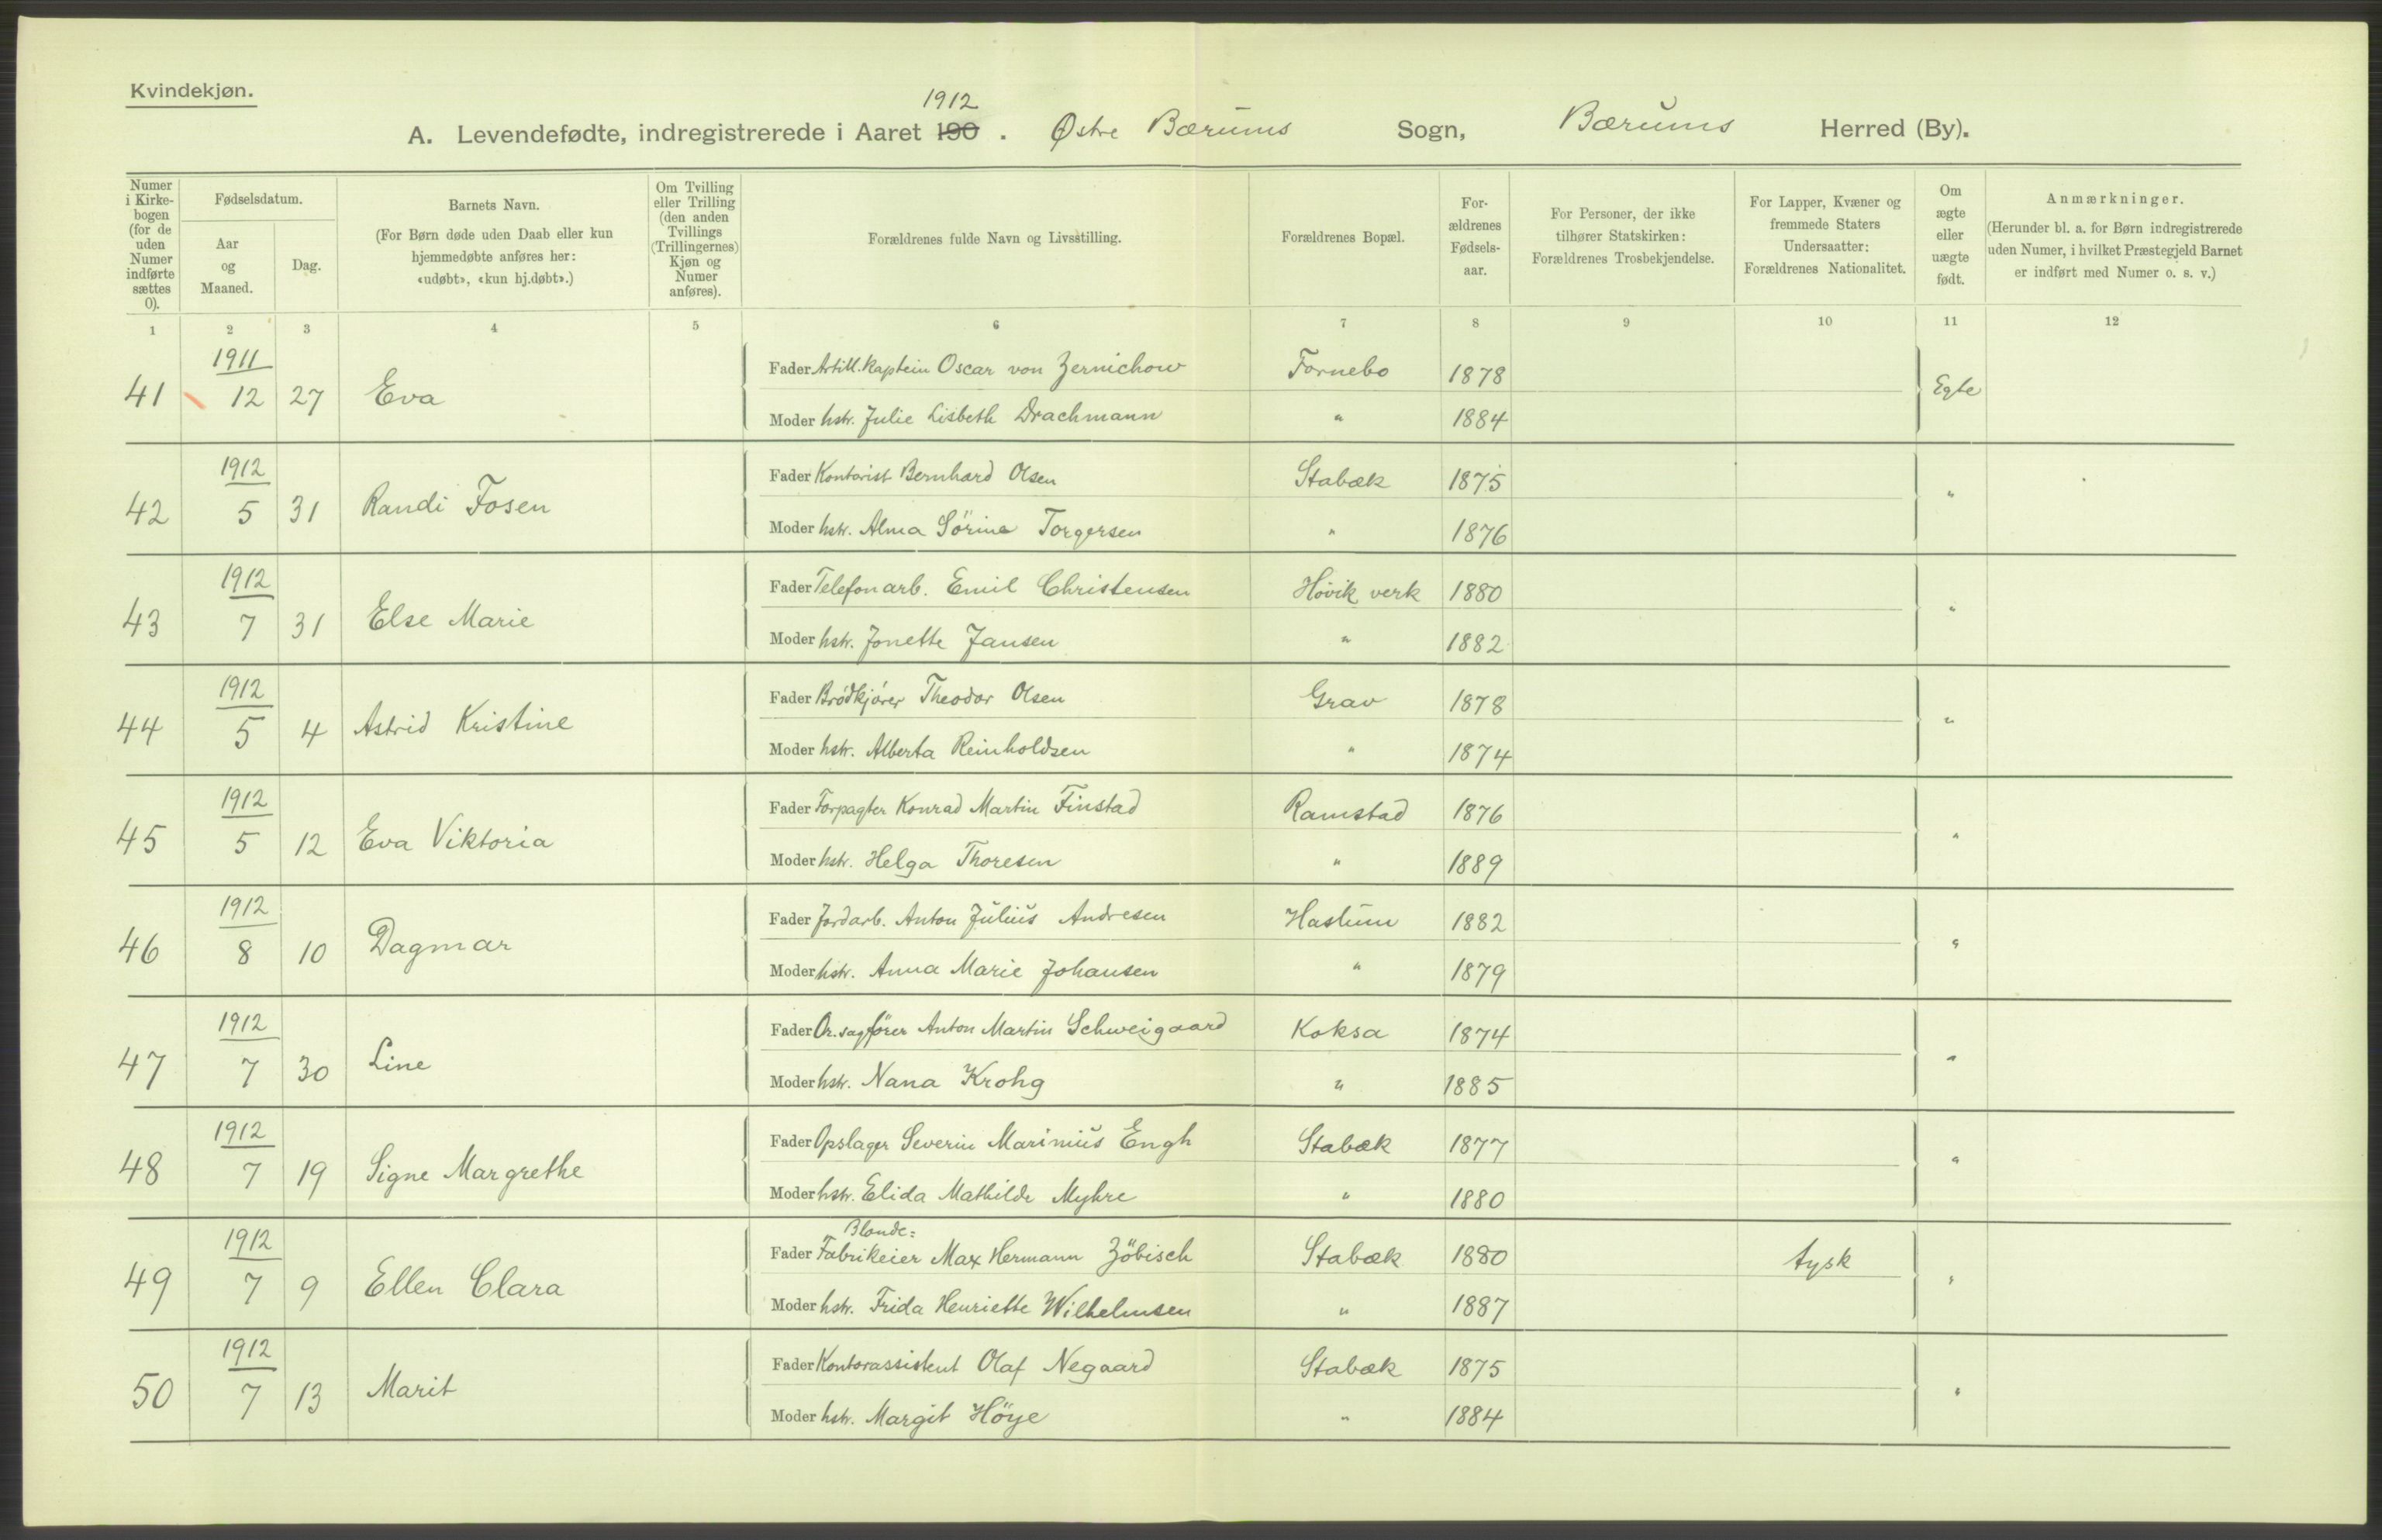 Kvindekjøn.
1912
A. Levendefødte, indregistrerede i Aaret 190 . Østre Bærums Sogn, Bærums Herred (By).
Numer i Kirke-bogen (for de uden Numer indførte sættes 0).
Fødselsdatum.
Aar og Maaned.
Dag.
Barnets Navn.
(For Børn døde uden Daab eller kun hjemmedøbte anføres her: «udøbt», «kun hj.døbt».)
Om Tvilling eller Trilling (den anden Tvillings (Trillingernes) Kjøn og Numer anføres).
Forældrenes fulde Navn og Livsstilling.
Forældrenes Bopæl.
For-ældrenes Fødsels-aar.
For Personer, der ikke tilhører Statskirken: Forældrenes Trosbekjendelse.
For Lapper, Kvæner og fremmede Staters Undersaatter: Forældrenes Nationalitet.
Om ægte eller uægte født.
Anmærkninger.
(Herunder bl. a. for Børn indregistrerede uden Numer, i hvilket Præstegjeld Barnet er indført med Numer o. s. v.)
1 2 3 4 5 6 7 8 9 10 11 12
1911
41 12 27 Eva
Fader Artill. Kaptein Oscar von Zernichow Fornebo 1878 Egte
Moder hstr. Julie Lisbeth Drachmann " 1884
1912
42 5 31 Randi Fosen
Fader Kontorist Bernhard Olsen Stabæk 1875 "
Moder hstr. Alma Sörine Torgersen " 1876
1912
43 7 31 Else Marie
Fader Telefonarb. Emil Christensen Høvik verk 1880 "
Moder hstr. Jonette Jansen " 1882
1912
44 5 4 Astrid Kristine
Fader Brödkjörer Theodor Olsen Grav 1878 "
Moder hstr. Alberta Reinholdsen " 1874
1912
45 5 12 Eva Viktoria
Fader Forpagter Konrad Martin Finstad Ramstad 1876 "
Moder hstr. Helga Thoresen " 1889
1912
46 8 10 Dagmar
Fader Jordarb. Anton Julius Andresen Haslum 1882 "
Moder hstr. Anna Marie Johansen " 1879
1912
47 7 30 Line
Fader Or. sagfører Anton Martin Schweigaard Koksa 1874 "
Moder hstr. Nana Krohg " 1885
1912
48 7 19 Signe Margrethe
Fader Opslager Severin Marinius Engh Stabæk 1877 "
Moder hstr. Elida Mathilde Myhre " 1880
1912
49 7 9 Ellen Clara
Blonde=
Fader Fabrikeier Max Hermann Zöbisch Stabæk 1880 tysk "
Moder hstr. Frida Henriette Wilhelmsen " 1887
1912
50 7 13 Marit
Fader Kontorassistent Olaf Negaard Stabæk 1875 "
Moder hstr. Margit Höye " 1884